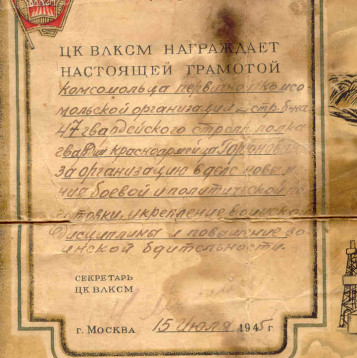 ВЛКСМ
ЦК ВЛКСМ НАГРАЖДАЕТ
НАСТОЯЩЕЙ ГРАМОТОЙ
Комсомольца первичной комсо
мольской организации
47 гвардейского стрелк. полка
гвардии красноармейца
за организацию
боевой и политической по
укрепление воинско
дисциплины и повышение во
инской бдительности.
СЕКРЕТАРЬ
ЦК ВЛКСМ
г. МОСКВА 15 Июля 1945 г.